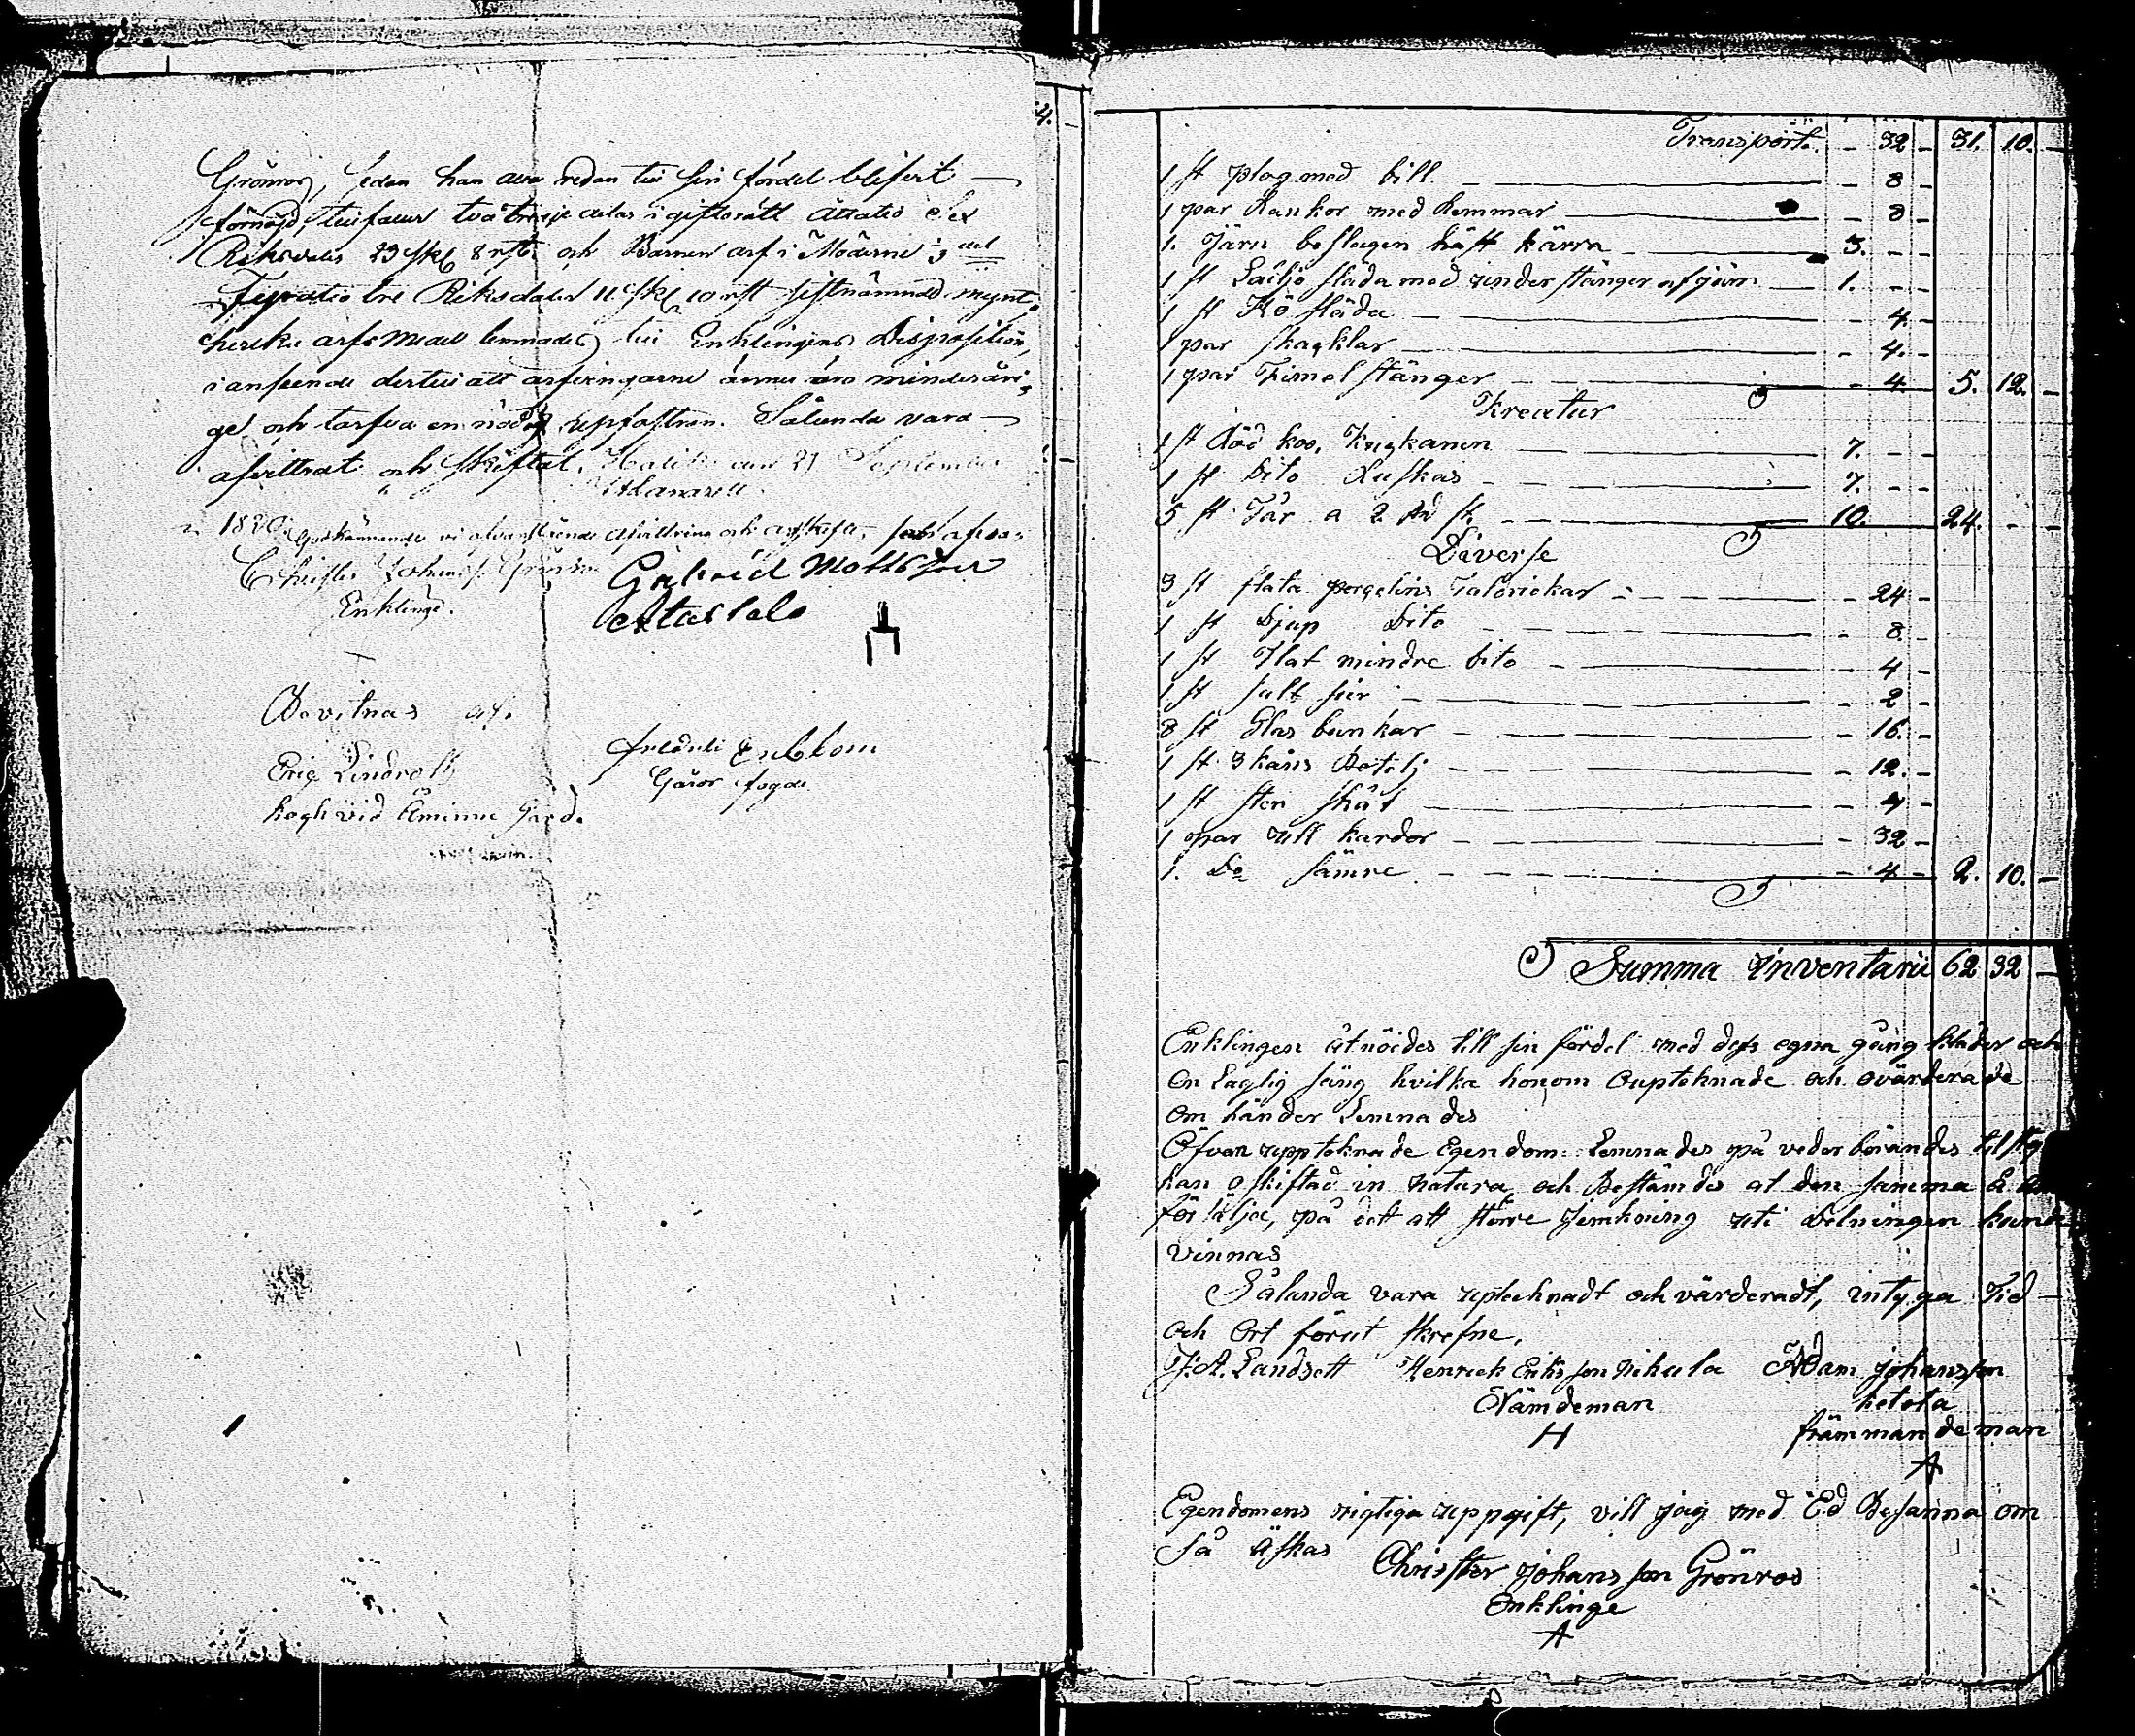 Grönros, sedan han aldra redan till sin fördel blifvit
förnöjd, tillfaller två tredje delar i giftorätt Åttatio Sex
Riksdaler 23 skl 8 rst. och Barnen arf i Möderne ⅓ del
Fyratio tre Riksdaler 11 skl 10 rst sistnämnde mynt,
hvilka arfs medel lemnades till Enklingens Disposition,
i anseende dertill att arfvingarne ännu äro minderåri-
ge och tarfva en nödig uppfostran. Sålunda vara
afvittrat och skiftat, Haliko den 21 September
1820 Godkännande vi ofvanstående afvittring och arfskifte,
Christer Johansson Grönros Gabriel Mattsson
Enkling.
Bevitnas af.
Eric Lindroth Fredric Enblom
vid Åminne Gård. Gårds fogde
4.
Transport. - 32 - 31. 10. -
1 st plog med bill - 8 -
1 par Rankor med Remmar - 8 -
1. Järn beslagen häst kärra 3. - -
1 st släda med under stänger af järn 1. - -
1 st Hö släda - 4. -
1 par skacklar - 4. -
1 par Fimel stänger - 4 5. 12. -
Kreatur
1 st Röd koo, 7. - -
1 st Dito 7. - -
5 st Får a 2 Rd st. 10. 24. - -
Diverse
3 st flata porselins Taldrickar - 24 -
1 st Djup Dito - 8 -
1 st Flat mindre dito - 4 -
1 st salt - 2 -
8 st Glas bunkar - 16. -
1 st 3 kans Botelj - 12. -
1 st sten - 4 -
1 par ull kardor - 32 -
1. Do sämre - 4 - 2. 10. -
Summa Inventarii 62 32 -
Enklingen åtnöides till sin fördel med dess egna gång kläder och
en Laglig säng hvilka honom oupteknade och ovärderade
om händer Lemnades
Ofvan uppteknade Egendom Lemnades på vederbörandes
oskiftad in natura och Bestämdes at den samma
försälja, på det att större jemkning uti delningen
vinnas
Sålunda vara uptecknadt och värderadt, intyga Tid
och Ort förut skrefne.
J. A. Landsett Henrick Eriksson Adam Johansson
Nämdeman
H främmande man
A
Egendomens rigtiga uppgift, vill jag med Ed Besanna om
så äskas
Christer Johansson Grönros
Enklinge
A